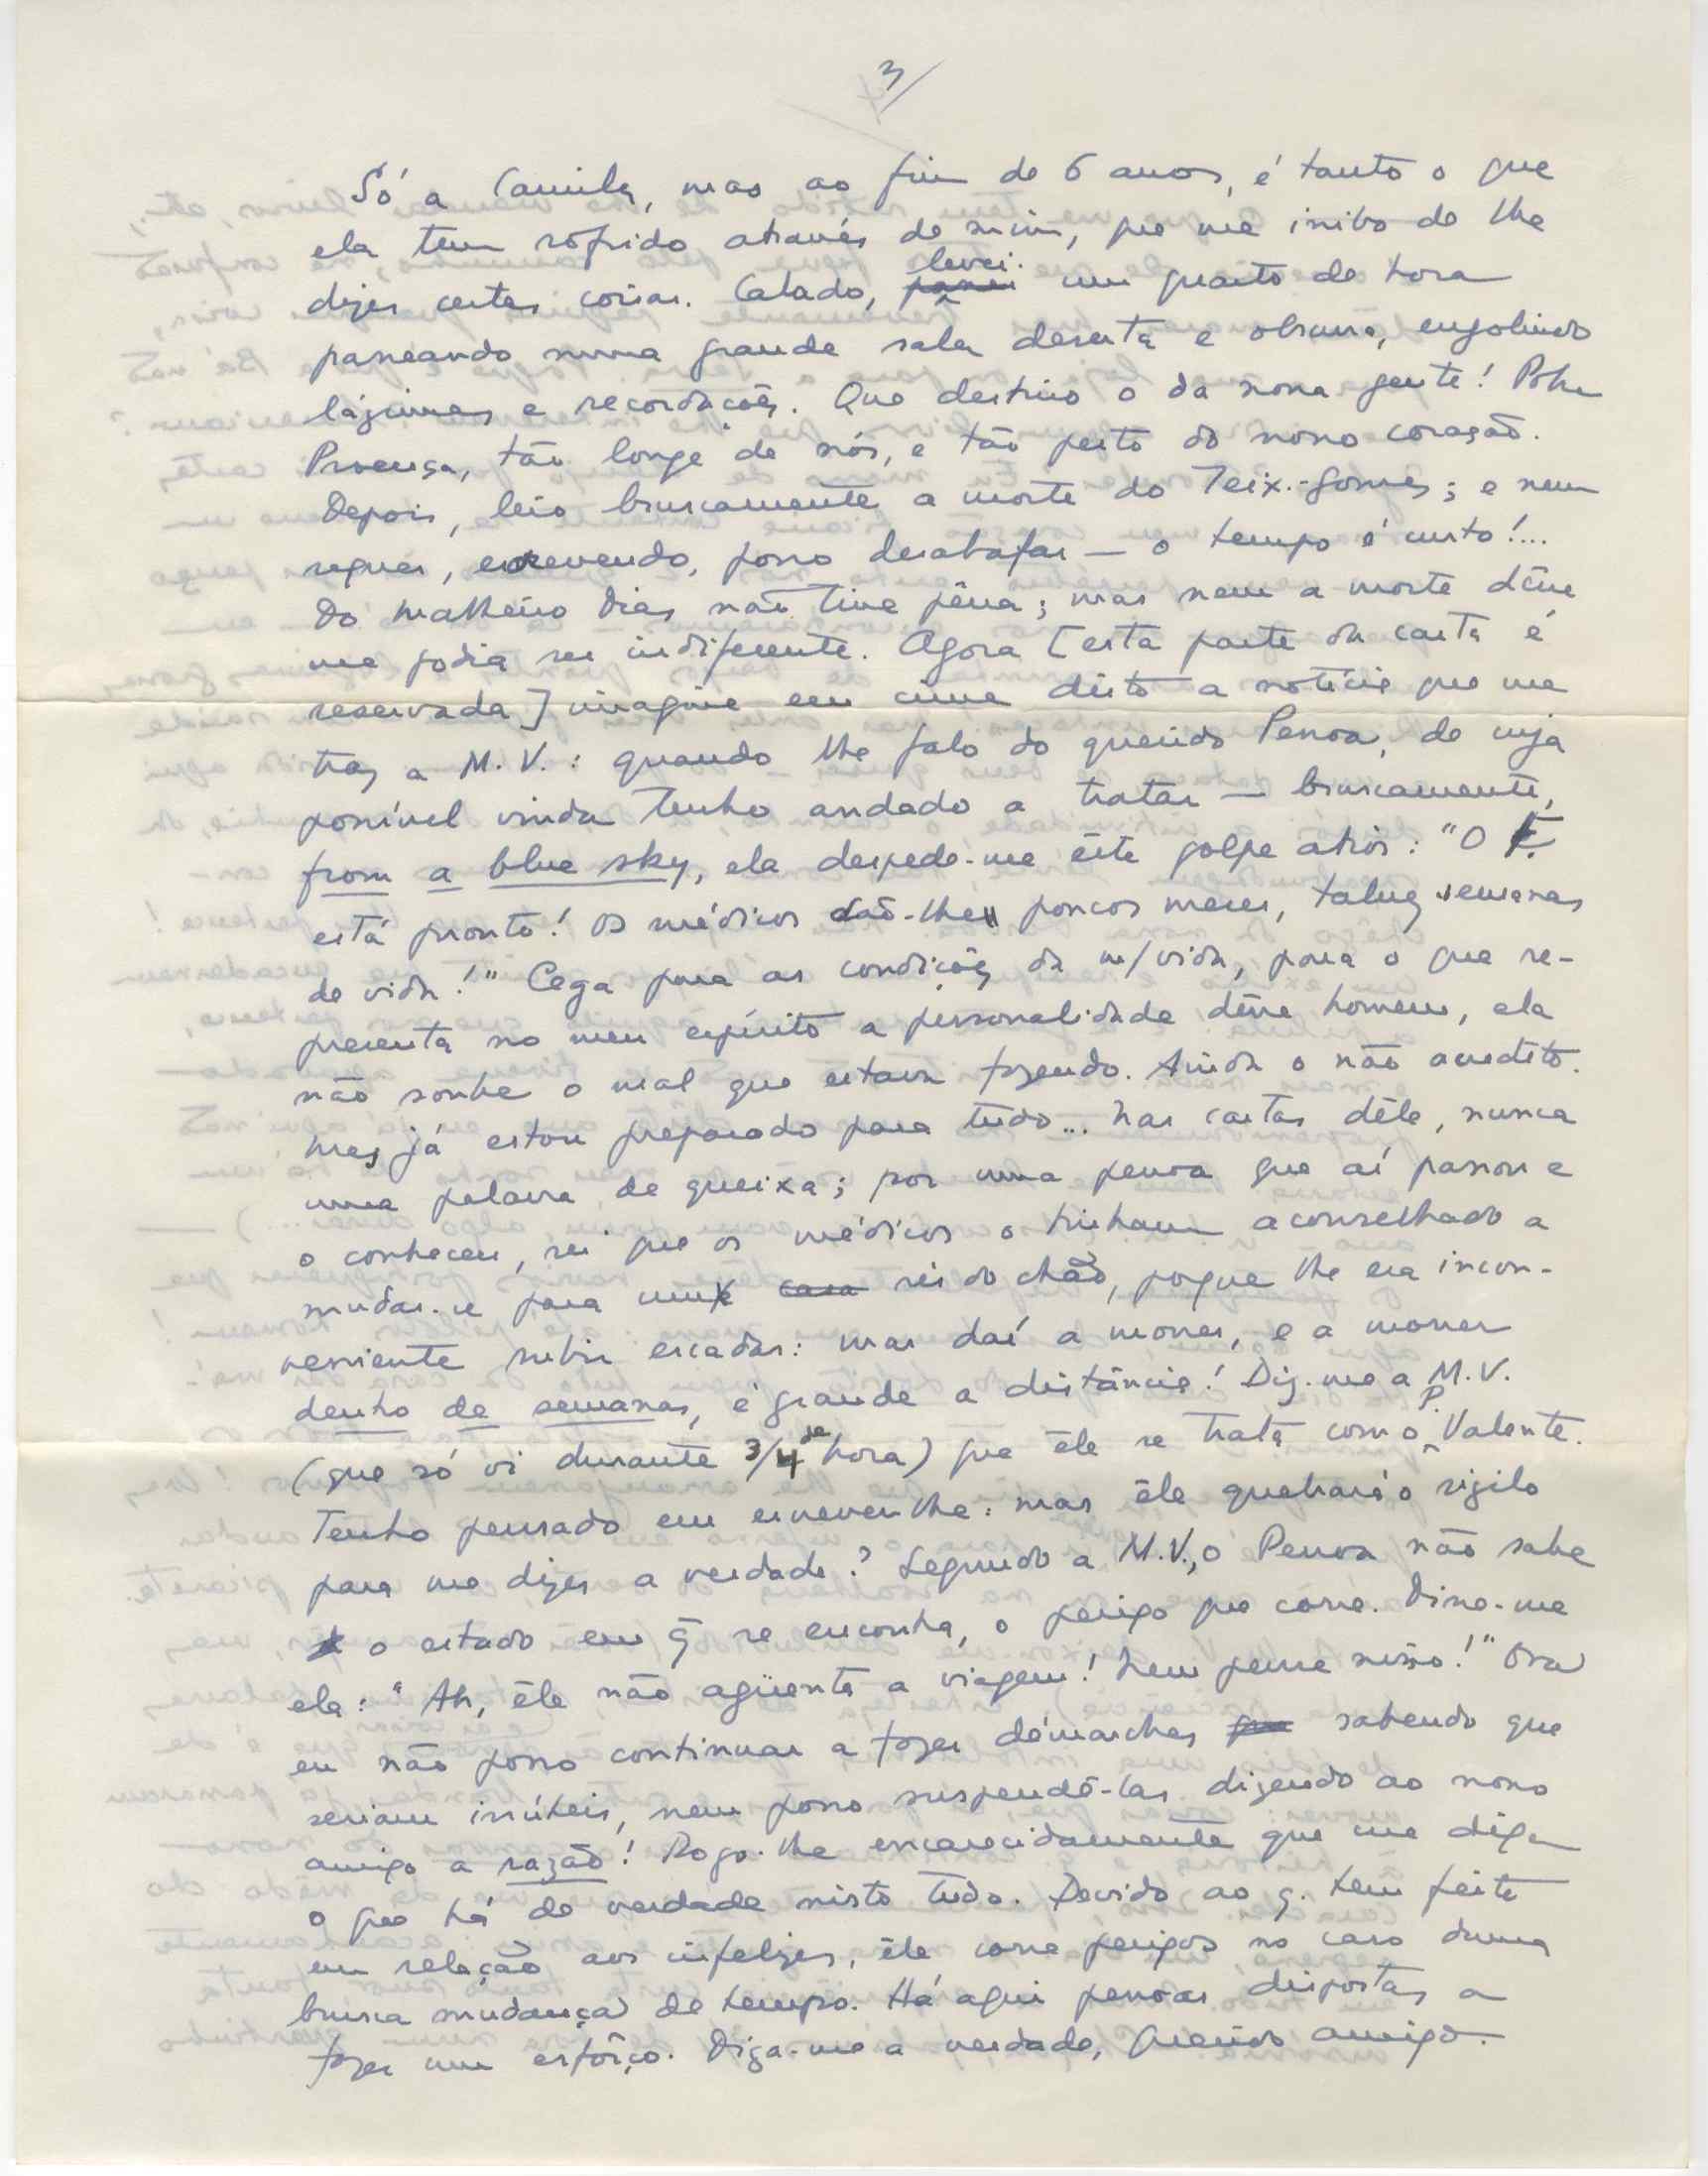 3/
Só a Camila, mas ao fim de 6 anos, é tanto o que
ela tem sofrido através de mim, que me inibo de lhe
dizer certas coisas. Calado, levei um quarto de hora
passeando numa grande sala deserta e obscura, engolindo
lágrimas e recordações. Que destino o da nossa gente! Pobre
Proença, tão longe de nós, e tão perto do nosso coração.
Depois, leio bruscamente a morte do Teix.-Gomes; e nem
sequer, escrevendo, posso desabafar — o tempo é curto!...
Do Malheiro Dias não tive pêna; mas nem a morte dêsse
me podia ser indiferente. Agora [esta parte da carta é
reservada] imagine em cima disto a notícia que me
traz a M. V.: quando lhe falo do querido Pessoa, de cuja
possível vinda tenho andado a tratar — bruscamente,
from a blue sky, ela despede-me êste golpe atrós: "O
está pronto! Os médicos dão-lhe poucos meses, talvez semanas
de vida!" Cega para as condições da m/ vida, para o que re-
presenta no meu espírito a personalidade dêsse homem, ela
não soube o mal que estava fazendo. Ainda o não acredito.
Mas já estou preparado para tudo... Nas cartas dêle, nunca
uma palavra de queixa; por uma pessoa que aí passou e
o conheceu, sei que os médicos o tinham aconselhado a
mudar-se para um casa rés do chão, porque lhe era incon-
veniente subir escadas: mas daí a morrer, e a morrer
dentro de semanas, é grande a distância! Diz-me a M. V.
(que só vi durante 3/4 de hora) que êle se trata com o P. Valente.
Tenho pensado em escrever-lhe: mas êle quebrará o sigilo
para me dizer a verdade? Segundo a M.V., o Pessoa não sabe
o estado em q̃ se encontra, o perigo que corre. Disse-me
ela: "Ah, êle não agüenta a viagem! Nem pense nisso!" Ora
eu não posso continuar a fazer démarches sabendo que
seriam inúteis, nem posso suspendê-las dizendo ao nosso
amigo a razão! Rogo-lhe encarecidamente que me diga
o que há de verdade nisto tudo. Devido ao q. tem feito
em relação aos infelizes, êle corre perigos no caso duma
brusca mudança de tempo. Há aqui pessoas dispostas a
fazer um esfôrço. Diga-me a verdade, querido amigo.